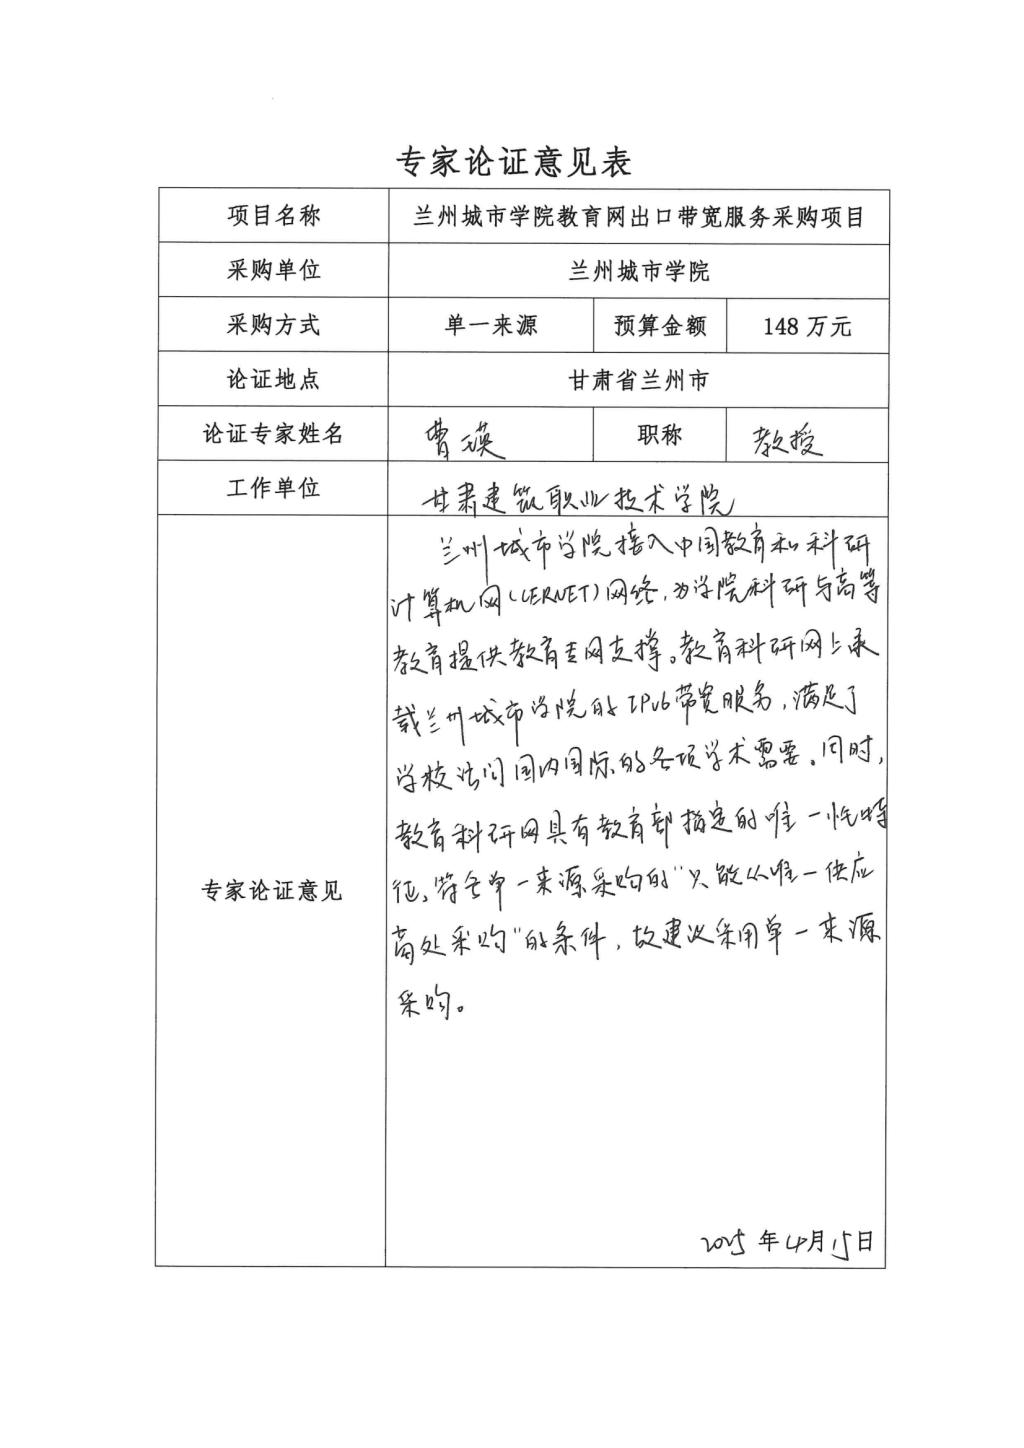 专家论证意见表
项目名称 兰州城市学院教育网出口带宽服务采购项目
采购单位 兰州城市学院
采购方式 单一来源 预算金额 148 万元
论证地点 甘肃省兰州市
论证专家姓名 曹瑛 职称 教授
工作单位 甘肃建筑职业技术学院
专家论证意见
兰州城市学院接入中国教育和科研
计算机网(CERNET)网络,为学院科研与高等
教育提供教育专网支撑。教育科研网上承
载兰州城市学院的IPv6带宽服务,满足了
学校访问国内国际的各项学术需要。同时,
教育科研网具有教育部指定的唯一性特
征,符合单一来源采购的"只能从唯一供应
商处采购"的条件,故建议采用单一来源
采购。
2025 年 4 月 15 日